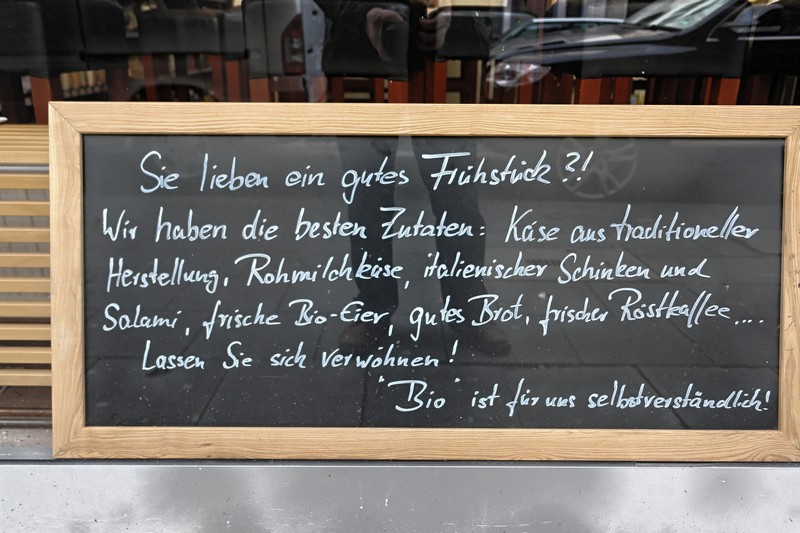 Sie lieben ein gutes Frühstück?!
Wir haben die besten Zutaten: Käse aus traditioneller
Herstellung, Rohmilchkäse, italienischer Schinken und
Salami, frische Bio-Eier, gutes Brot, frischer Röstkaffee....
Lassen Sie sich verwöhnen!
"Bio" ist für uns selbstverständlich!